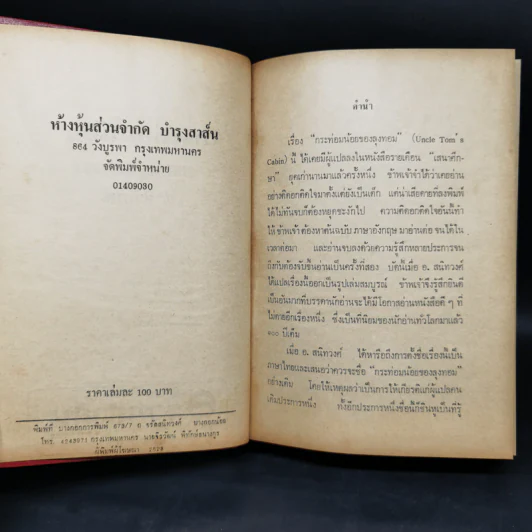 ห้างหุ้นส่วนจำกัด บำรุงสาส์น
864 วังบูรพา กรุงเทพมหานคร
จัดพิมพ์จำหน่าย
01409030
ราคาเล่มละ 100 บาท
พิมพ์ที่ บางกอกการพิมพ์ 679/7 ถ จรัลสนิทวงศ์ บางกอกน้อย
โทร. 4249971 กรุงเทพมหานคร
ผู้พิมพ์ผู้โฆษณา
คำนำ
เรื่อง “กระท่อมน้อยของลุงทอม” (Uncle Tom's
Cabin) นี้ ได้เคยมีผู้แปลลงในหนังสือรายเดือน “เสนาศึก-
ษา” ยุคเก่านานมาแล้วครั้งหนึ่ง ข้าพเจ้าจำได้ว่าเคยอ่าน
อย่างติดอกติดใจมาตั้งแต่ยังเป็นเด็ก แต่น่าเสียดายที่ลงพิมพ์
ได้ไม่ทันจบก็ต้องหยุดชะงักไป ความติดอกติดใจอันนี้ทำ
ให้ ข้าพเจ้า ต้องหาต้นฉบับ ภาษาอังกฤษ มาอ่านต่อ จนได้ใน
เวลาต่อมา และอ่านจบลงด้วยความรู้สึกหลายประการจน
ถึงกับต้องจับขึ้นอ่านเป็นครั้งที่สอง บัดนี้เมื่อ อ. สนิทวงศ์
ได้แปลเรื่องนี้ออกเป็นรูปเล่มสมบูรณ์ ข้าพเจ้าจึงรู้สึกยินดี
เป็นอันมากที่บรรดานักอ่านจะได้มีโอกาสอ่านหนังสือดี ๆ ที่
ไม่ตายอีกเรื่องหนึ่ง ซึ่งเป็นที่นิยมของนักอ่านทั่วโลกมาแล้ว
๑๐๐ ปีเต็ม
เมื่อ อ. สนิทวงศ์ ได้หารือถึงการตั้งชื่อเรื่องนี้เป็น
ภาษาไทยและเสนอว่าควรจะชื่อ “กระท่อมน้อยของลุงทอม”
อย่างเดิม โดยให้เหตุผลว่าเป็นการให้เกียรติแก่ผู้แปลคน
เดิมประการหนึ่ง ทั้งอีกประการหนึ่งชื่อนี้ก็ชินหูเป็นที่รู้